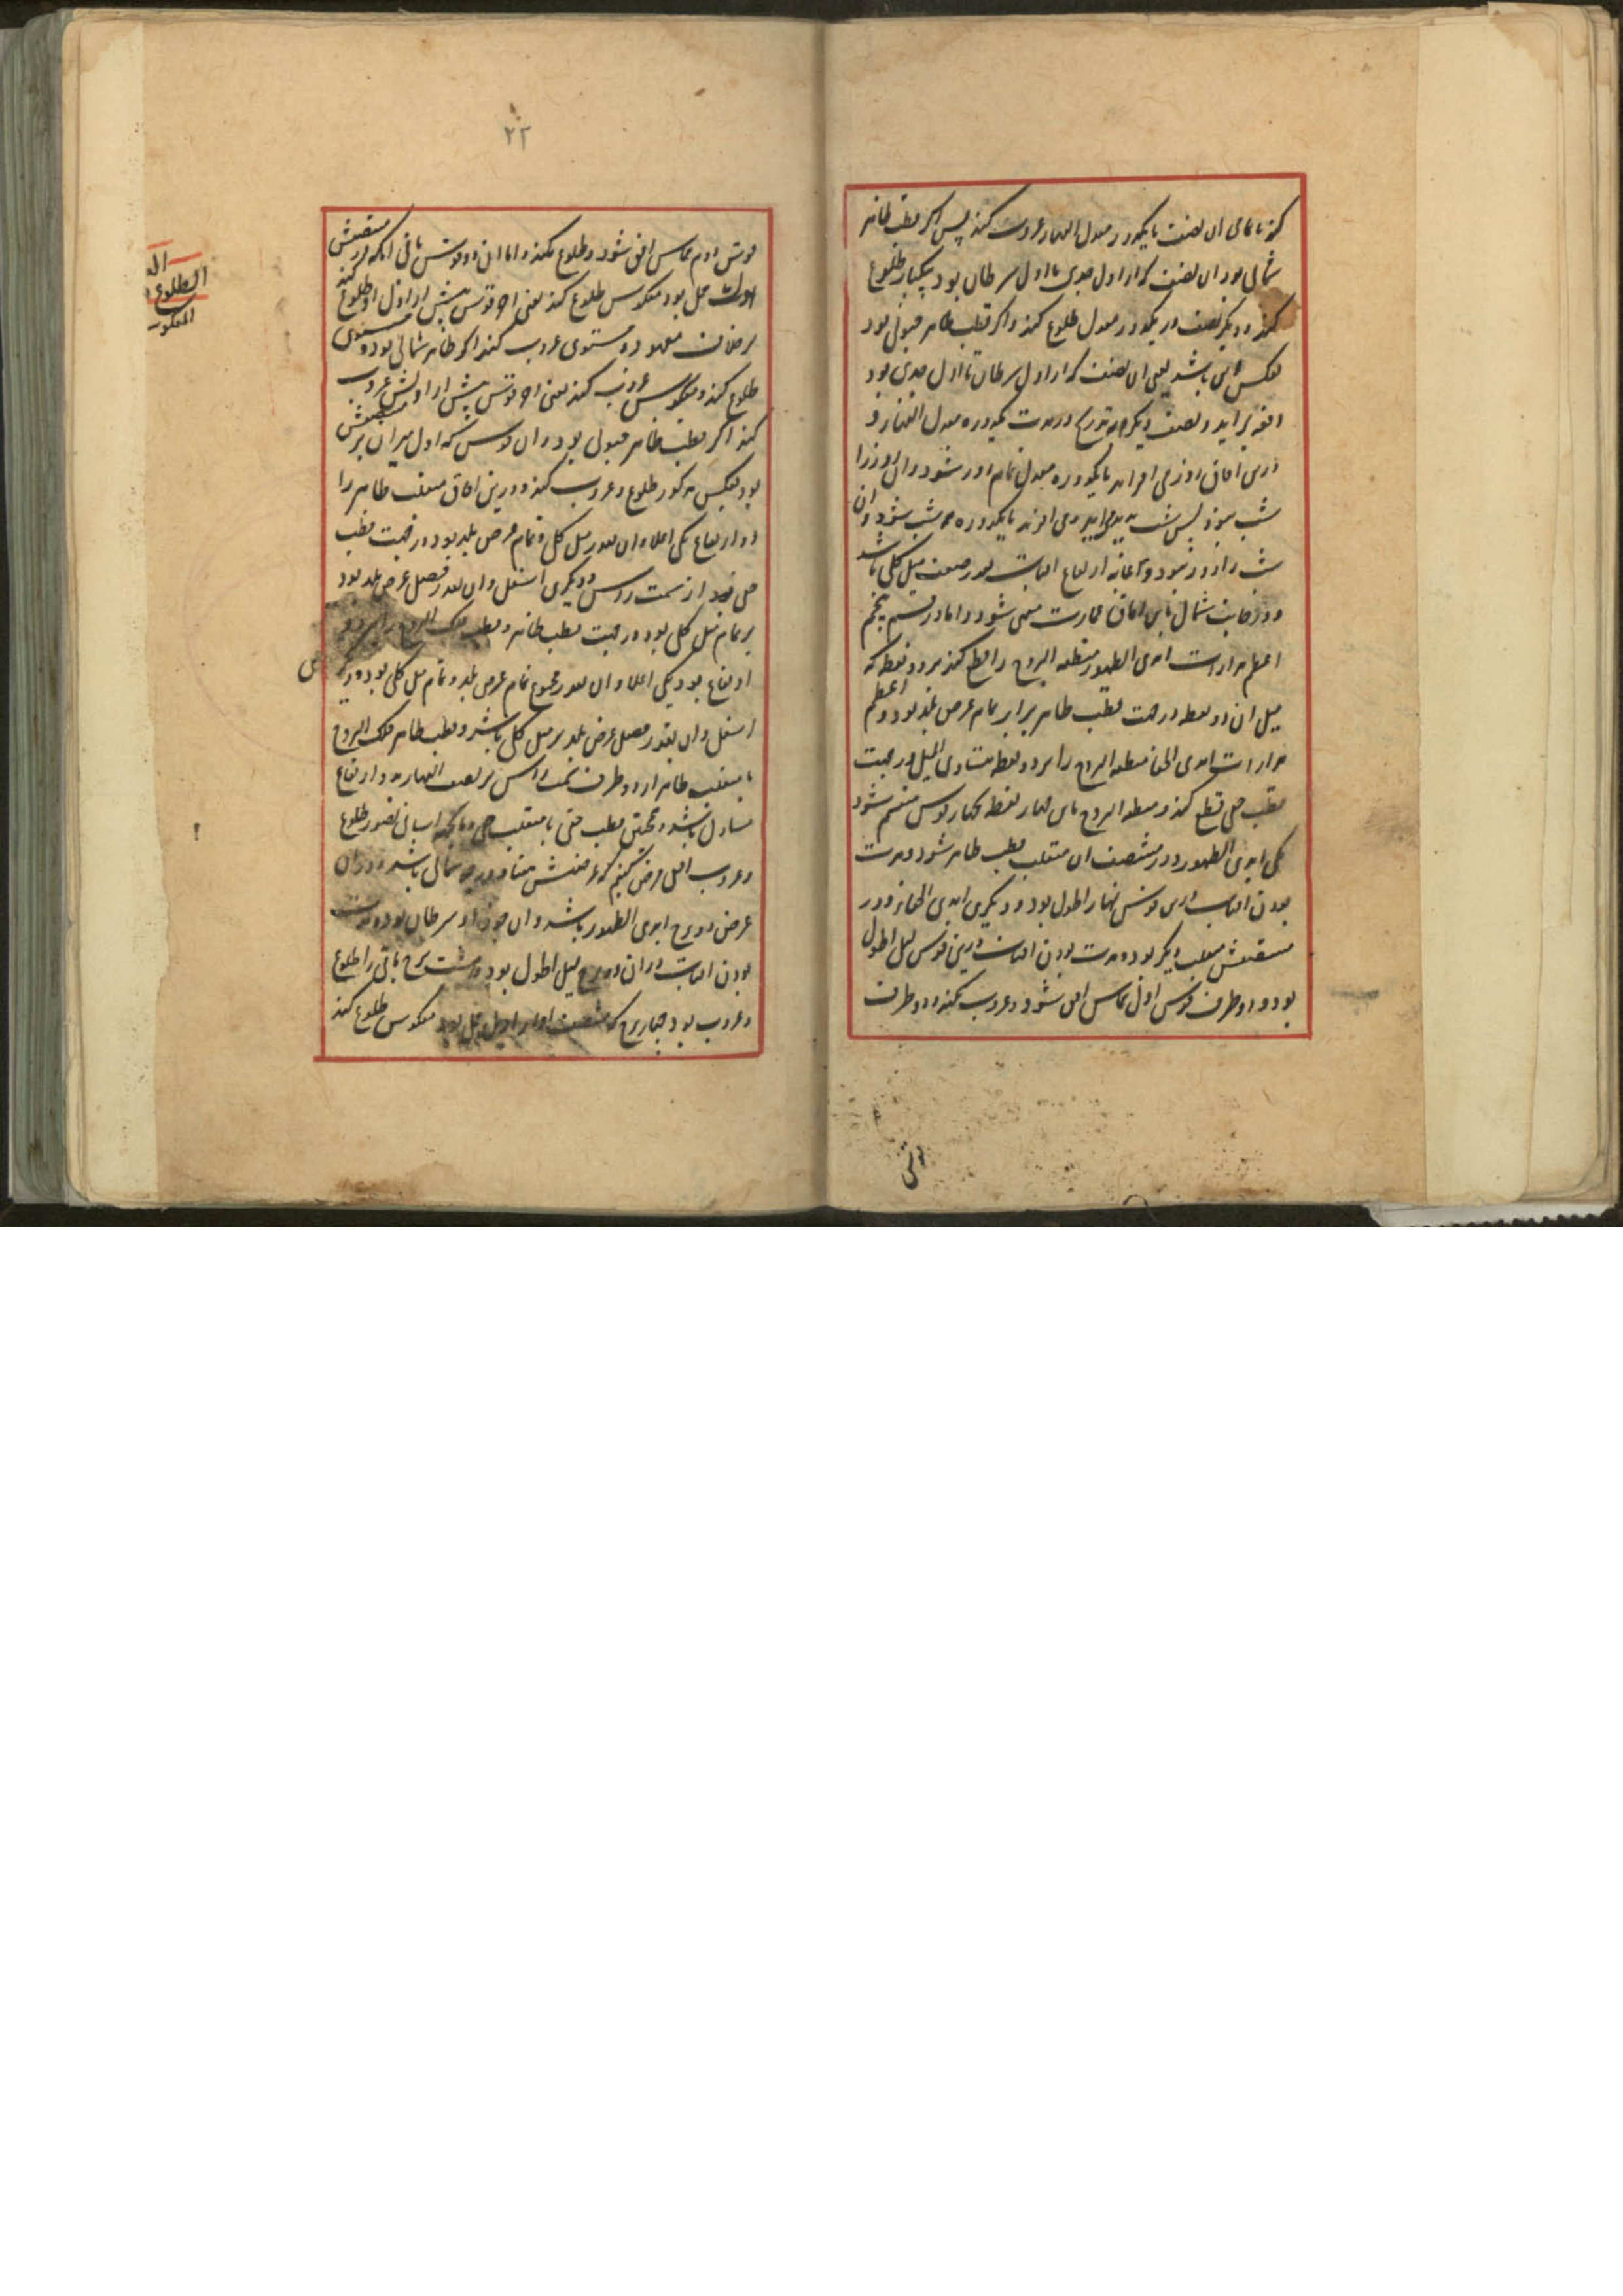 کند تا تمامی ان نصف با یکدور معدل النهار غروب کند پس اگر قطب ظاهر
شمالی بود ان نصف که از اول جدی تا اول سرطان بود بیکبار طلوع
کند و دیگر نصف در یکدور معدل طلوع کند و اگر قطب ظاهر جنوبی بود
بعکس این باشد یعنی ان نصف که از اول سرطان تا اول جدی بود
دفعه براید و نصف دیگر بتدریج در مدت یکدوره معدل النهار و
درین افاق روز می افزاید تا یکدوره معدل تمام روز شود و ان روز را
شب نبود پس شب پدید اید و می افزاید تا یکدوره شب شود و ان
شب را روز نبود و غایة ارتفاع افتاب بقدر ضعف میل کلی باشد
و در جانب شمال باین افاق عمارت منتهی شود و اما در قسم پنجم
اعظم مدارات ابدی الظهور منطقة البروج را قطع کند بر دو نقطه که
میل ان دو نقطه در جهت قطب ظاهر برابر تمام عرض بلد بود و اعظم
مدارات ابدی الخفا منطقة البروج را بر دو نقطه متساوی المیل در جهت
قطب خفی قطع کند و منطقة البروج باین چهار نقطه بچهار قوس منقسم شود
یکی ابدی الظهور و در منتصف ان منقلب قطب ظاهر شود و مدت
بودن افتاب درین قوس نهار اطول بود و دیگری ابدی الخفا و در
منتصفش منقلب دیگر بود و مدت بودن افتاب درین قوس لیل اطول
بود و دو طرف قوس اول مماس افق شود و غروب نکند و دو طرف
قوس
۲۲
قوس دوم مماس افق شود و طلوع نکند و اما ان دو قوس باقی انکه در منتصفش
اول حمل بود معکوس طلوع کند یعنی اخر قوس پیش از اول او طلوع کند
بر خلاف معهود و مستوی غروب کند اگر ظاهر شمالی بود و مستوی
طلوع کند و معکوس غروب کند یعنی اخر قوس پیش از اولش غروب
کند اگر قطب ظاهر جنوبی بود و ان قوس که اول میزان بر منتصفش
بود بعکس مذکور طلوع و غروب کند و درین افاق منقلب ظاهر را
دو ارتفاع یکی اعلا و ان بقدر میل کلی و تمام عرض بلد بود در جهت قطب
خفی از سمت راس و دیگری اسفل و ان بقدر فضل عرض بلد بود
بر تمام میل کلی بود در جهت قطب ظاهر و قطب فلک البروج را نیز دو
ارتفاع بود یکی اعلا و ان بقدر مجموع تمام عرض بلد و تمام میل کلی بود و دیگری
اسفل و ان بقدر فضل عرض بلد بر میل کلی باشد و قطب ظاهر فلک البروج
با منقلب ظاهر از دو طرف سمت راس بر نصف النهار بدو ارتفاع
متبادل باشد و همچنین قطب خفی با منقلب خفی و بجهة اسانی تصور طلوع
و غروب افقی فرض کنیم که عرضش هفتاد درجه شمالی باشد و دران
عرض دو برج ابدی الظهور باشد و ان جوزا و سرطان بود و مدت
بودن افتاب دران دو برج لیل اطول بود و هشت برج باقی را طلوع
و غروب بود چهار برج که منتصف او اول حمل بود معکوس طلوع کند
الطلوع
المعکوس